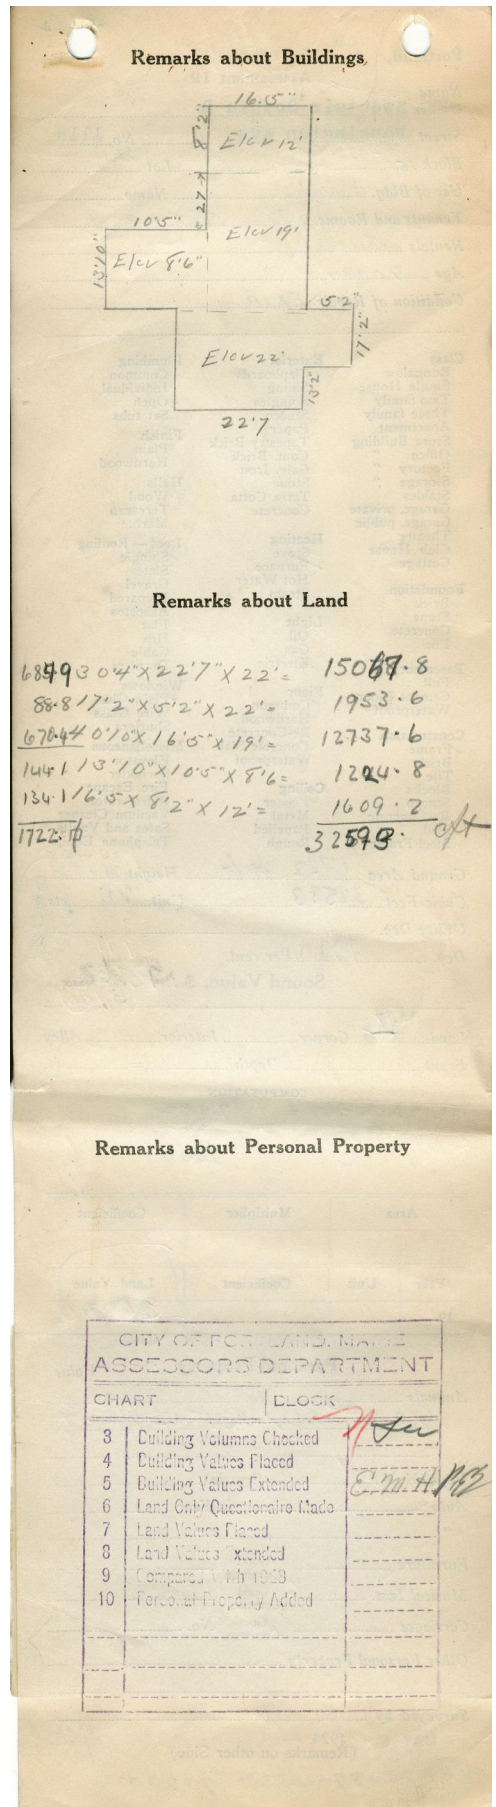 Remarks about Buildings
16'5"
8'2"
Elev 12'
27'
10'5"
Elev 19'
13'10"
Elev 8'6"
5'2"
17'2"
Elev 22'
13'2"
22'7
Remarks about Land
30'4" X 22'7" X 22' = 15067.8
88.8 17'2" X 5'2" X 22' = 1953.6
670.4 40'10" X 16'5" X 19' = 12737.6
144.1 13'10" X 10'5" X 8'6 = 1224.8
134.1 16'5 X 8'2" X 12' = 1609.2
1722. 32593. cft
Remarks about Personal Property
CITY OF PORTLAND, MAINE
ASSESSORS DEPARTMENT
CHART BLOCK
3 Building Volumns Checked
4 Building Values Placed
5 Building Values Extended E.M.H
6 Land Only Questionaire Made
7 Land Values Placed
8 Land Values Extended
9 Compared With 1923
10 Personal Property Added